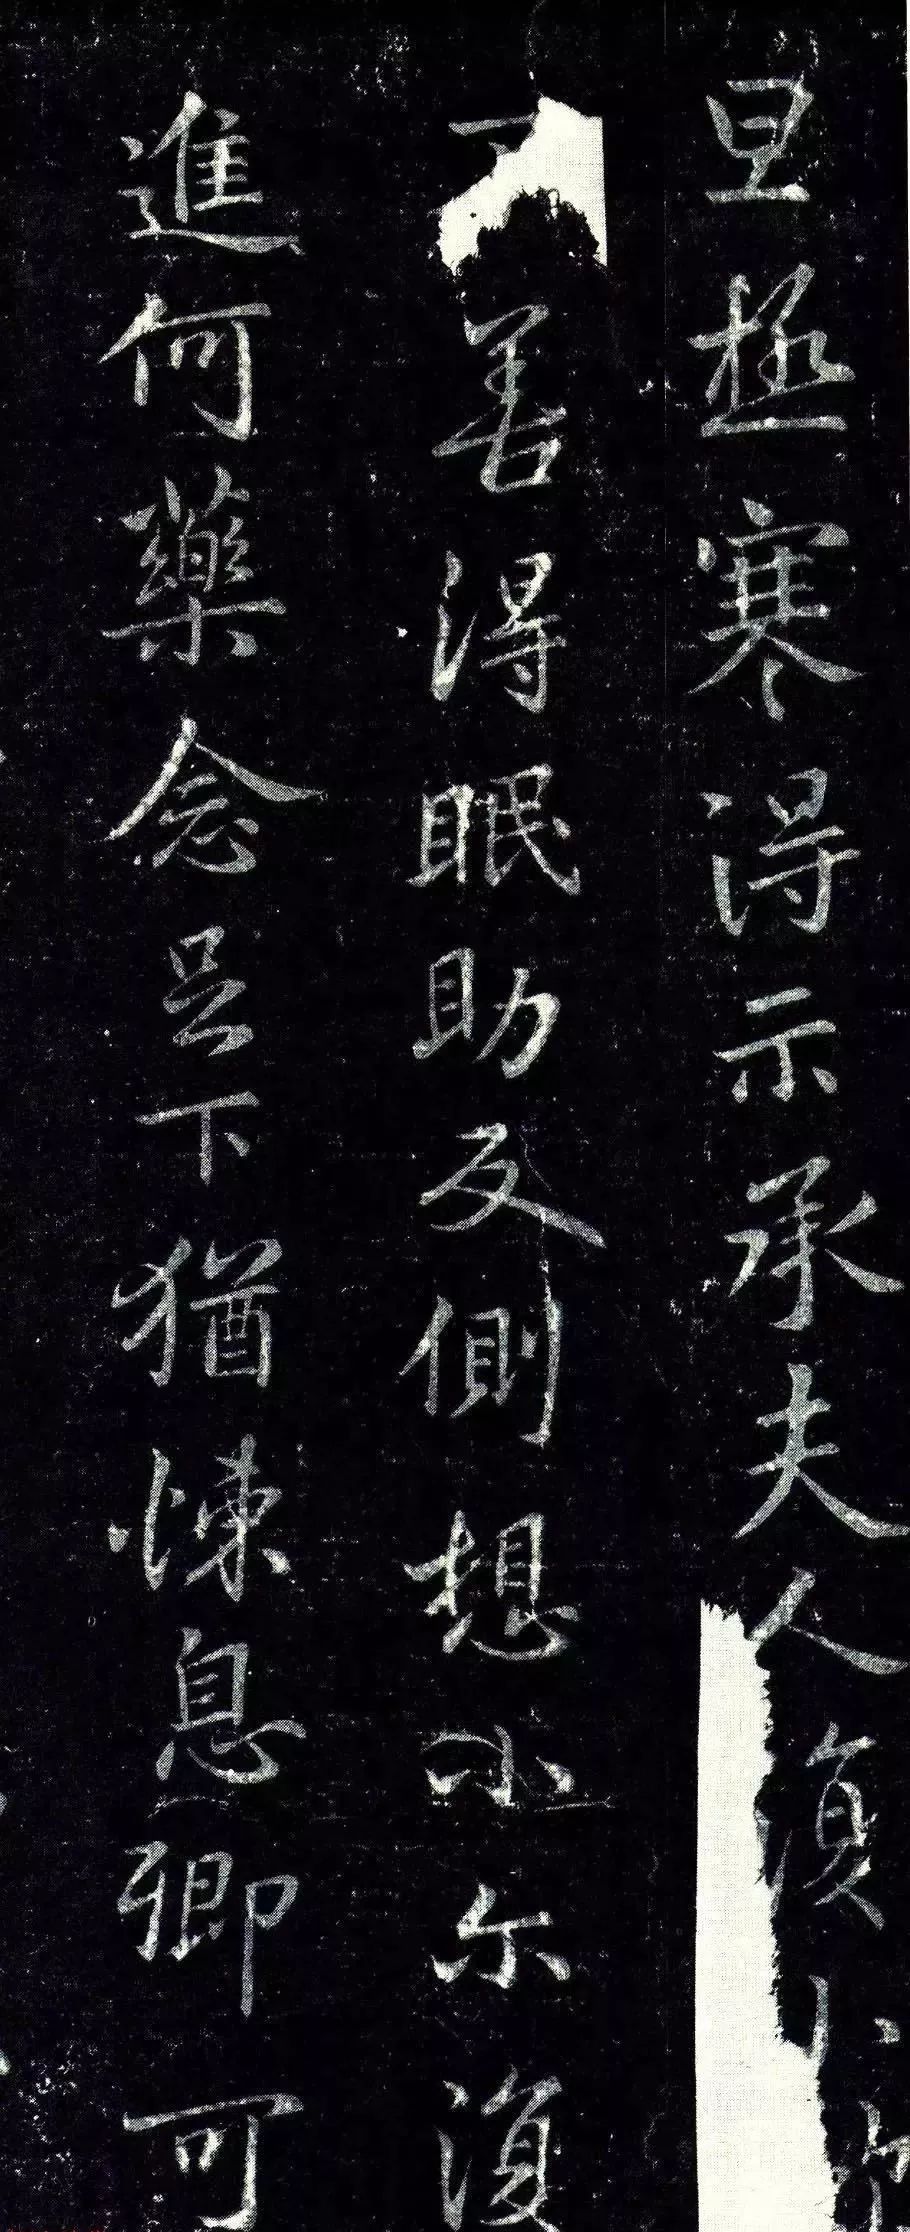 旦極寒得示承夫人復小
善得眠助反側想小尒復
進何藥念足下猶悚息卿可